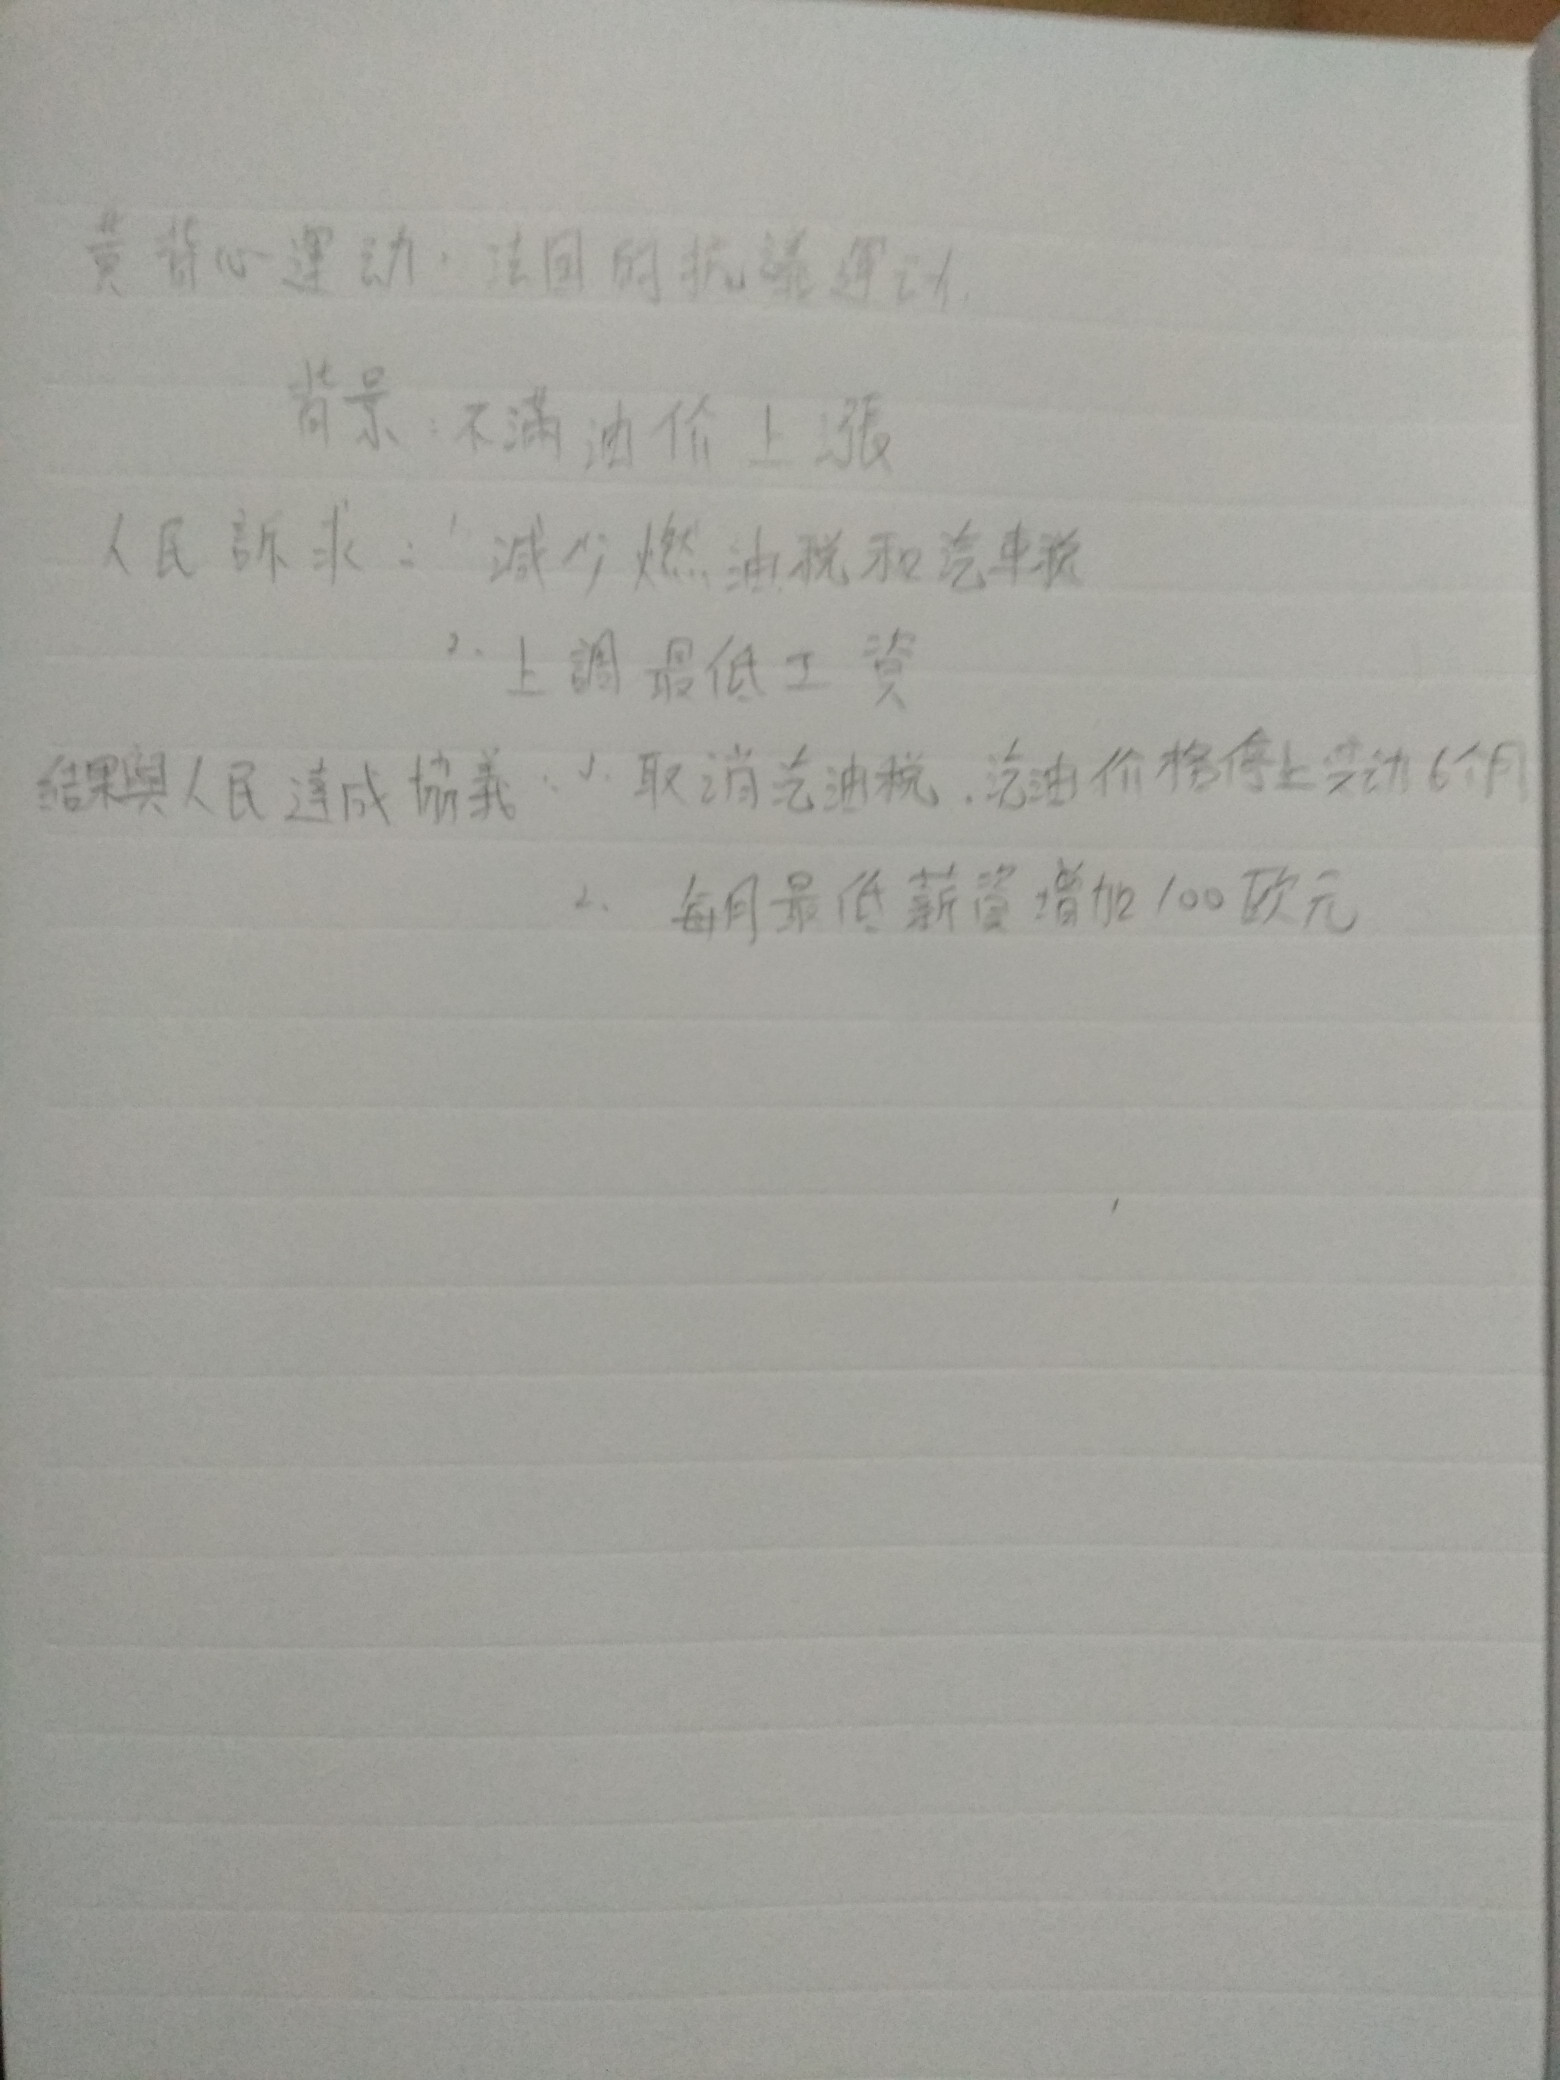 黃背心運动．法国的抗議運动．
背景：不滿油价上漲
人民訴求：1 減少燃油税和汽車税
2. 上調最低工資
結果與人民達成協義：1. 取消汽油税．汽油价格停止变动6个月
2. 每月最低薪資增加100欧元